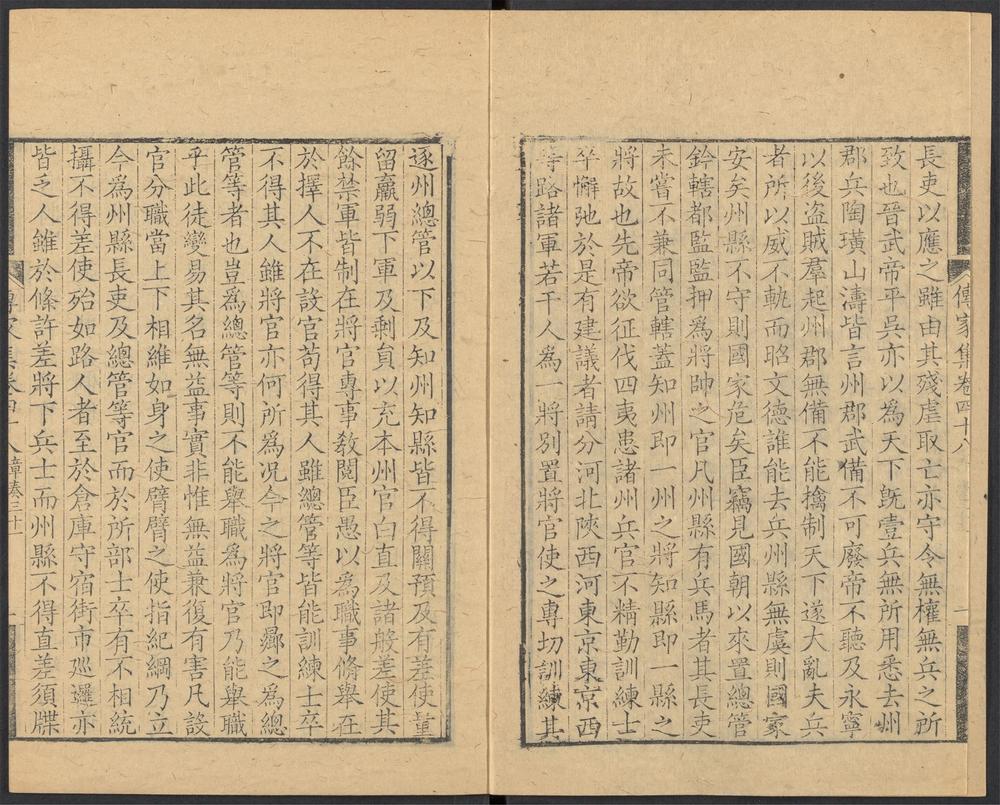 長吏以應之雖由其殘虐取亡亦守令無權無兵之所
致也晉武帝平吳亦以為天下旣壹兵無所用悉去州
郡兵陶璜山濤皆言州郡武備不可廢帝不聽及永寧
以後盜賊羣起州郡無備不能擒制天下遂大亂夫兵
者所以威不軌而昭文德誰能去兵州縣無虞則國家
安矣州縣不守則國家危矣臣竊見國朝以來置總管
鈐轄都監監押爲將帥之官凡州縣有兵馬者其長吏
未嘗不兼同管轄蓋知州即一州之將知縣即一縣之
將故也先帝欲征伐四夷患諸州兵官不精勤訓練士
卒懈弛於是有建議者請分河北陝西河東京東京西
等路諸軍若干人爲一將別置將官使之專切訓練其
傳家集卷四十八
一
逐州總管以下及知州知縣皆不得關預及有差使量
留羸弱下軍及剩員以充本州官白直及諸般差使其
餘禁軍皆制在將官專事敎閱臣愚以爲職事脩舉在
於擇人不在設官苟得其人雖總管等皆能訓練士卒
不得其人雖將官亦何所爲况今之將官即曏之爲總
管等者也豈爲總管等則不能舉職爲將官乃能舉職
乎此徒變易其名無益事實非惟無益兼復有害凡設
官分職當上下相維如身之使臂臂之使指紀綱乃立
今爲州縣長吏及總管等官而於所部士卒有不相統
攝不得差使殆如路人者至於倉庫守宿街市巡邏亦
皆乏人雖於條許差將下兵士而州縣不得直差須牒
傳家集卷四十八 章奏三十一